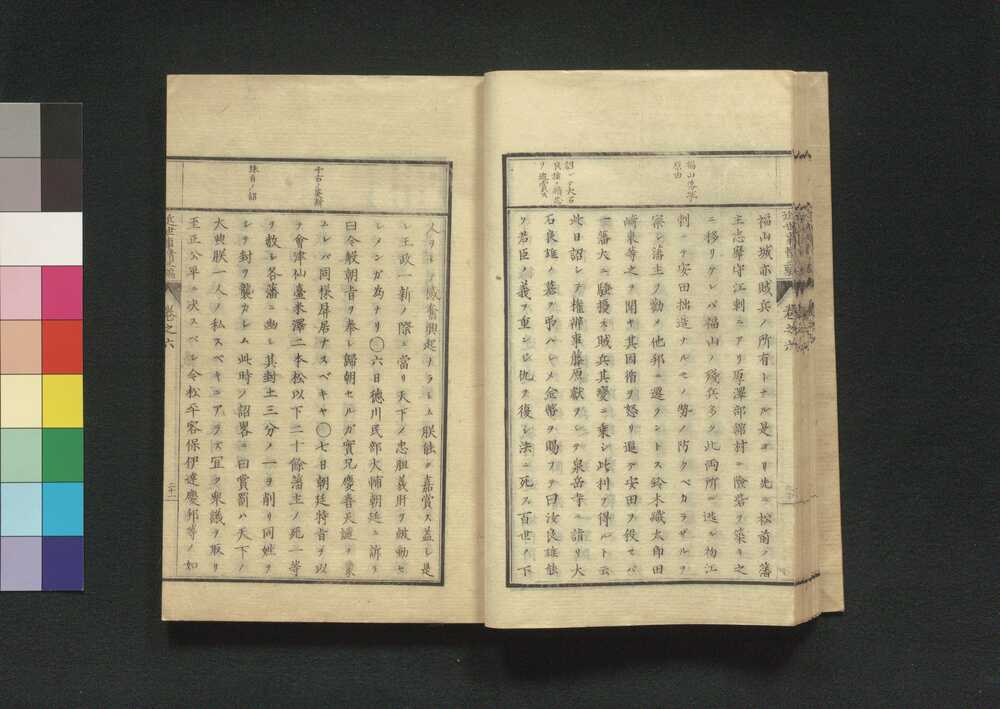 福山落城
原由
詔シテ大石
良雄ノ墓
ヲ
福山城亦賊兵ノ所有トナル是ヨリ先キ松前ノ藩
主志摩守江刺ニアリ厚澤部舘村ニ險砦ヲ築キ之
ニ移リケレバ福山ノ殘兵多ク此両所ニ逃レ徇江
刺ニハ安田拙造ナルモノ勢ノ防クベカラザルヲ
察シ藩主ノ勸メ他邦ニ遷ラントス鈴木織太郎田
崎東等之ヲ聞キ其因循ヲ怒リ進テ安田ヲ殺セバ
一藩大ニ騒擾ス賊兵其變ニ乗シ此州ヲ得ルト云
此日詔シテ権辨事藤原獻ヲシテ泉岳寺ニ詣リ大
石良雄ノ墓ヲ弔ハシメ金幣ヲ賜フテ曰汝良雄能
ク君臣ノ義ヲ重シジ仇ヲ復シ法ニ死ス百世ノ下
近世
巻之六
千古ノ
殊有ノ詔
人ヲシテ感奮興起ノラシム朕能ク嘉賞ス蓋シ是
レ王政一新ノ際ニ當リ天下ノ忠胆義肝ヲ鼓動セ
シメンガ為ナリ〇六日徳川民部大輔朝廷ニ訴リ
曰今般朝旨ヲ奉シ歸朝セルガ實兄慶喜失譴ヲ蒙
ユレバ同様屏居ナスベキヤ〇七日朝廷特旨ヲ以
テ會津仙臺米澤二本松以下二十餘藩主ノ死一等
ヲ敕シ各藩ニ幽シ其封土三分ノ一ヲ削リ同姓ヲ
シテ封ヲ襲カレム此時ノ詔畧ニ曰賞罰ハ天下ノ
大典朕一人ノ私スベキニアラズ宜ク衆議ヲ取リ
至正公平ニ决スベシ今松平容保伊達慶邦等ノ如
近世
巻之六
二十一